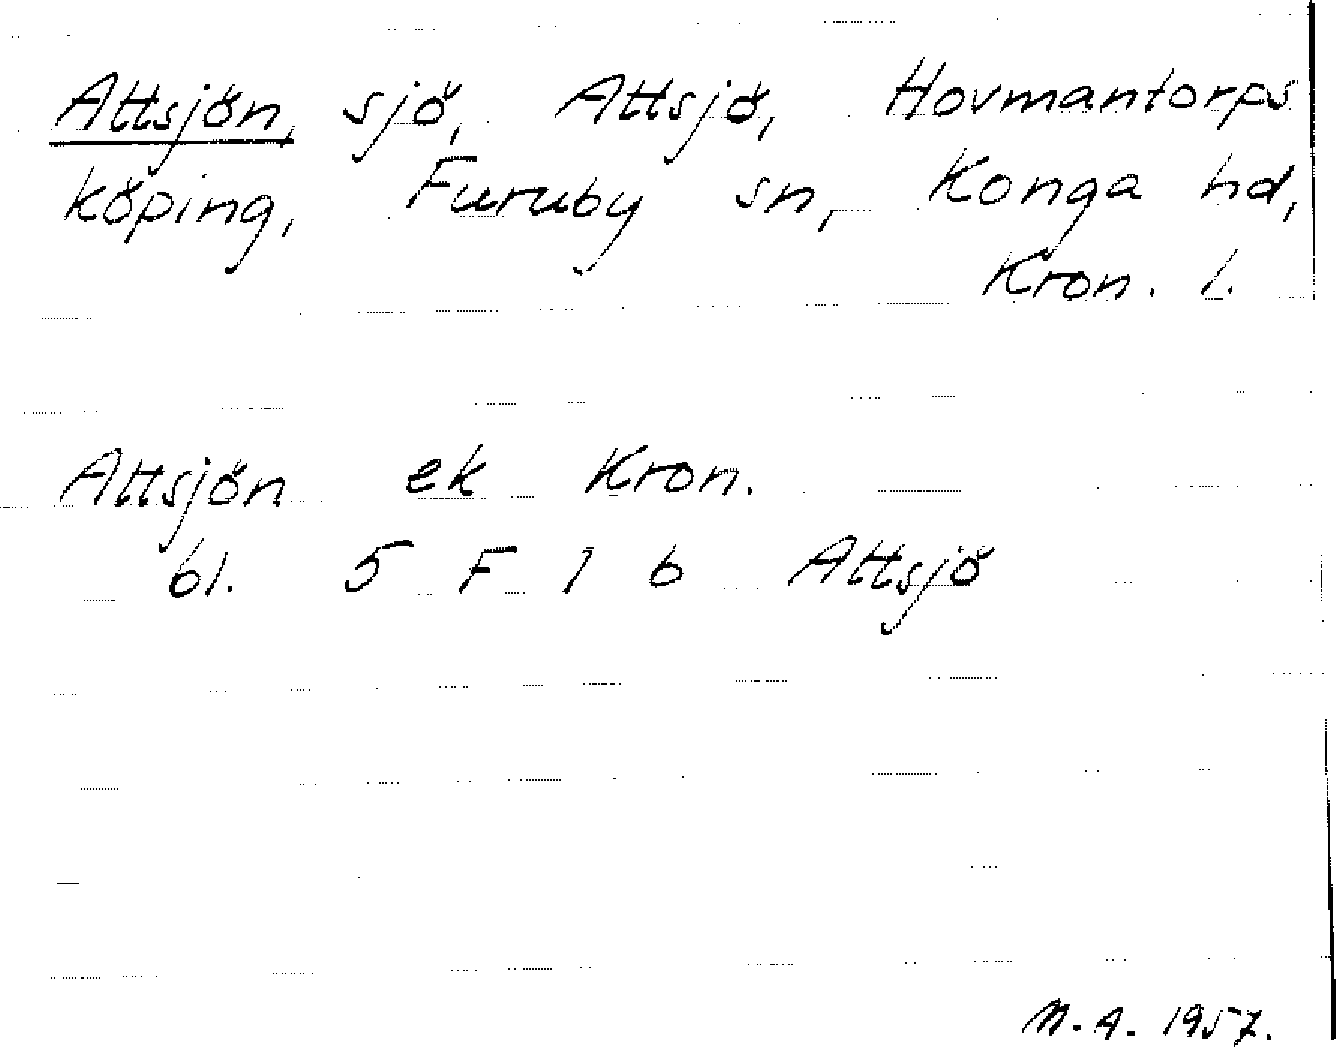 Attsjön, sjö, Attsjö, Hovmantorps
köping, Furuby sn, Konga hd,
Kron. l.
Attsjön ek Kron.
bl. 5 F 1 b Attsjö
M.A. 1957.